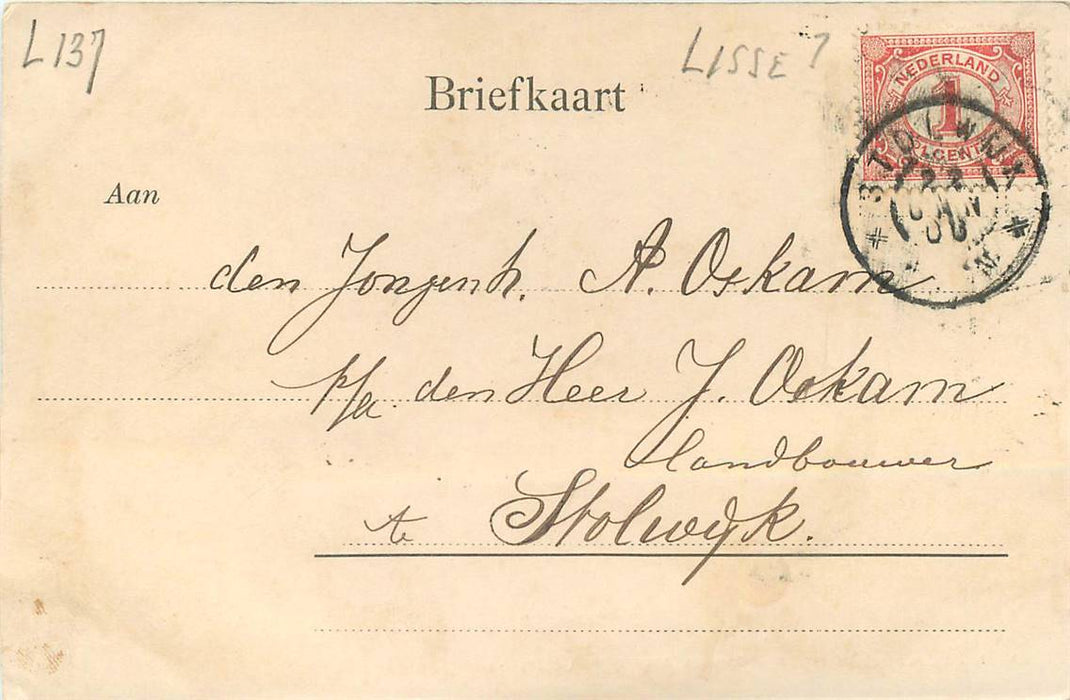 L137
LISSE ?
Briefkaart
NEDERLAND
1
CENT
STOLWIJK
Aan
den Jongenh. A. Oskam
p/a den Heer J. Oskam
Landbouwer
te Stolwijk.